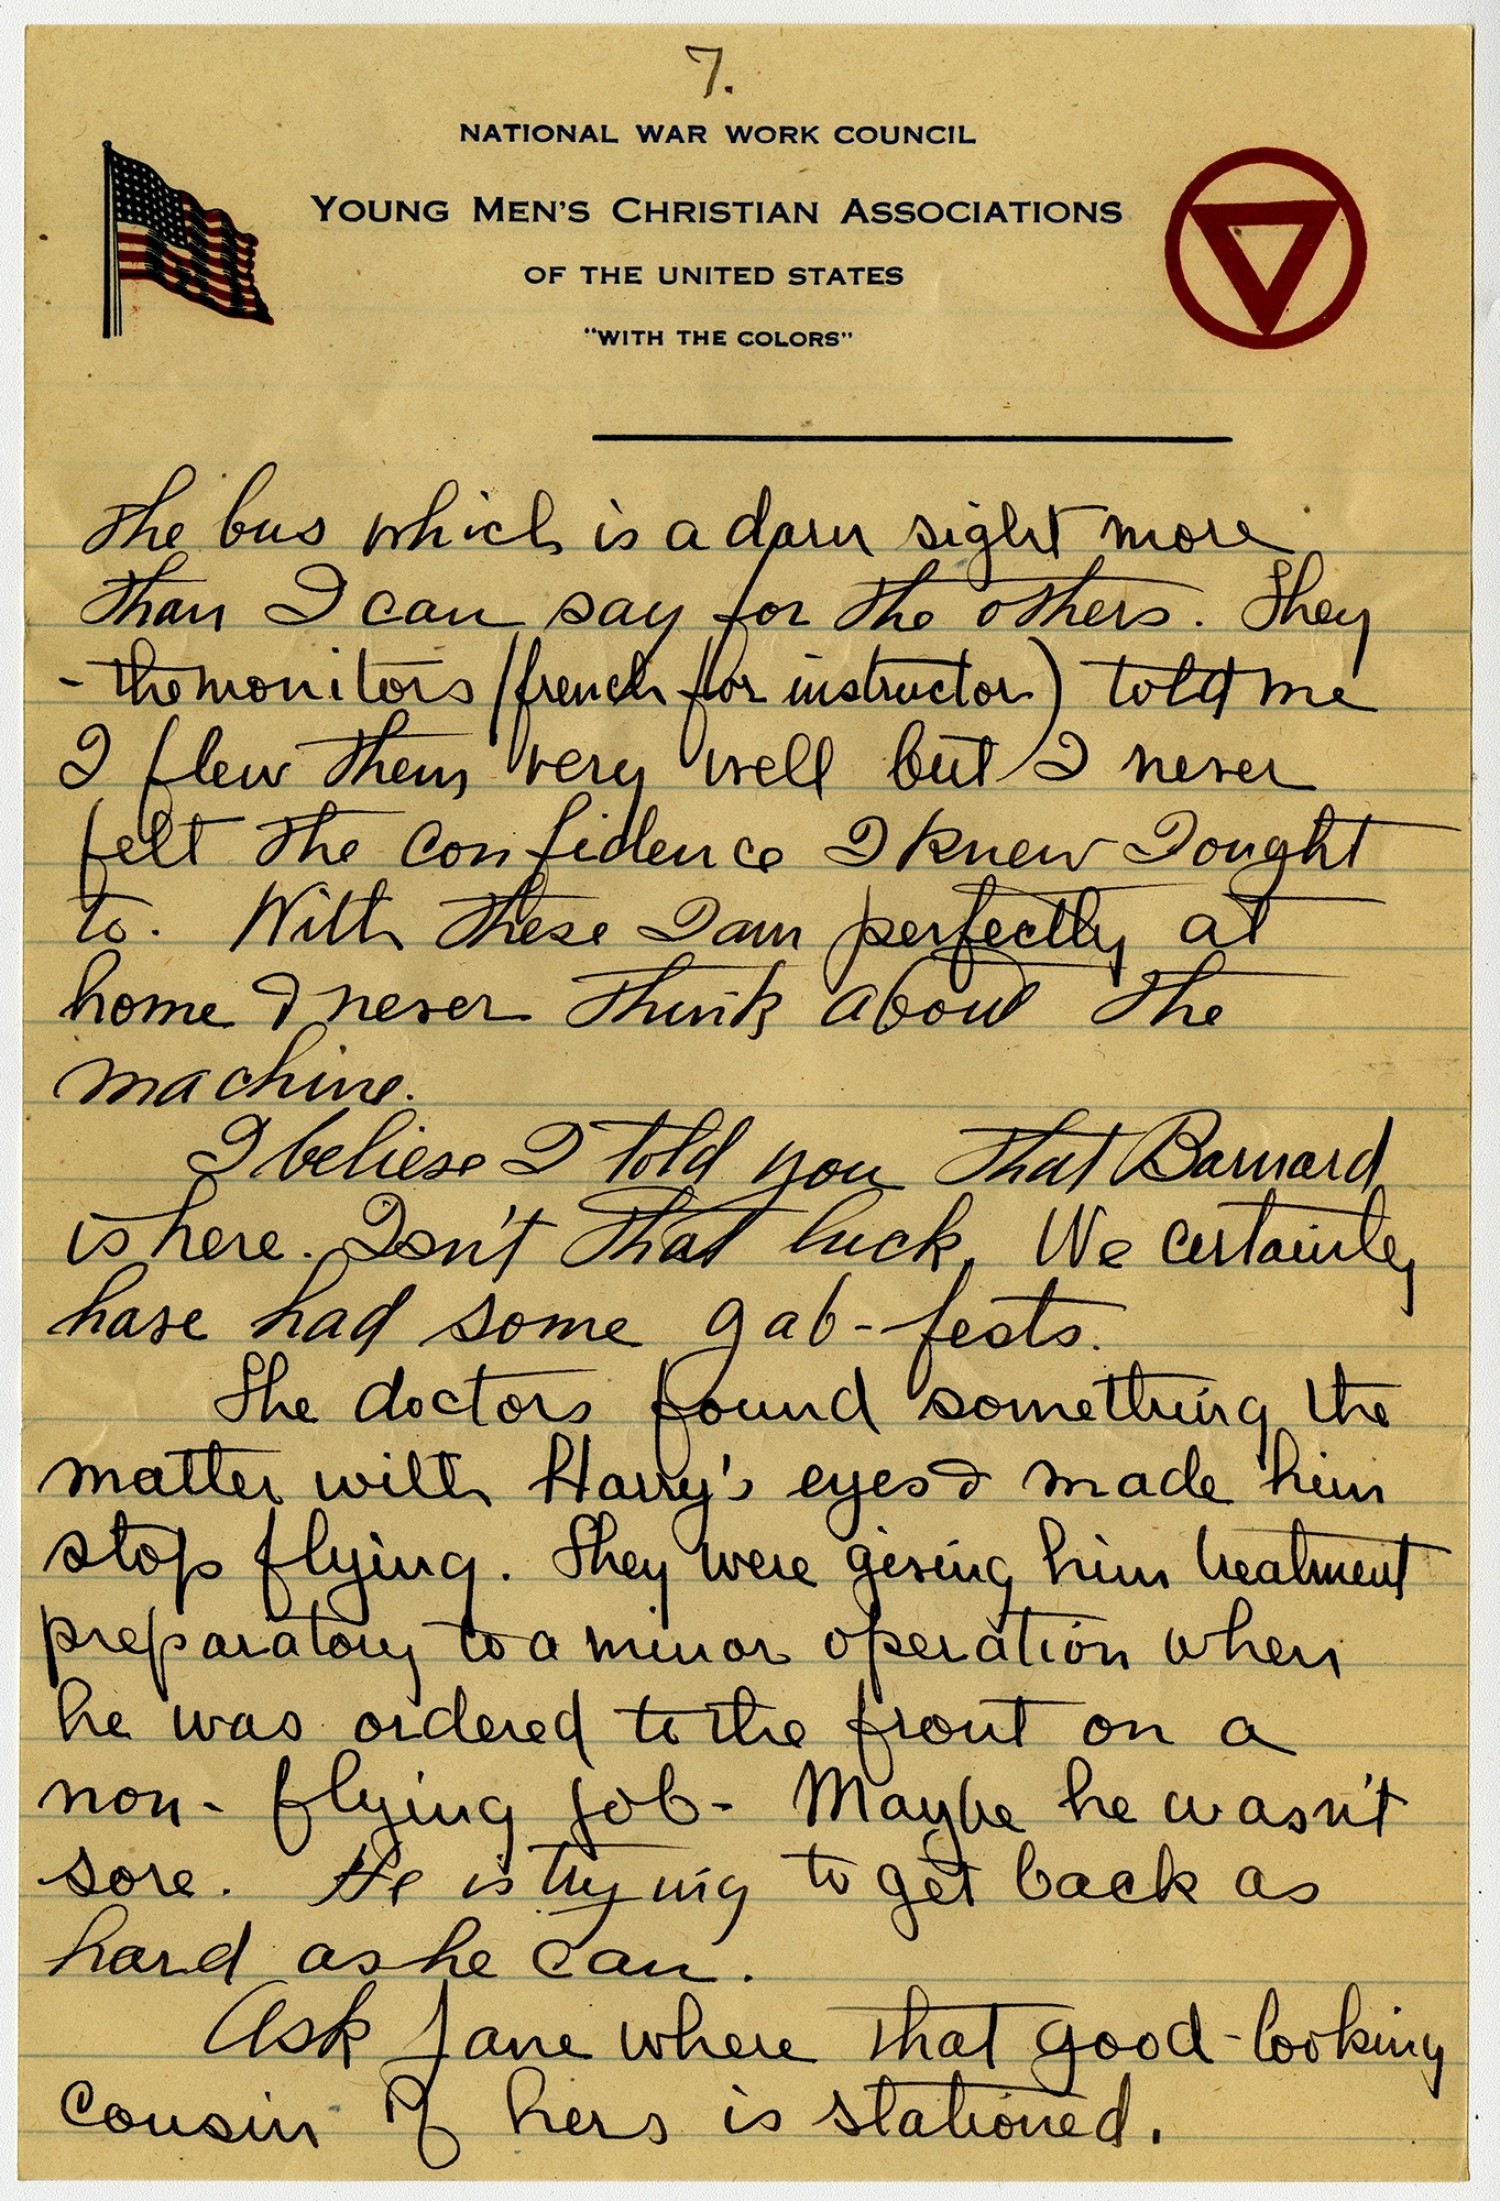 7.
NATIONAL WAR WORK COUNCIL
YOUNG MEN'S CHRISTIAN ASSOCIATIONS
OF THE UNITED STATES
"WITH THE COLORS"
the bus which is a darn sight more
than I can say for the others. They
- the monitors (french for instructor) told me
I flew them very well but I never
felt the confidence I knew I ought
to. With these I am perfectly at
home & never think about the
machine.
I believe I told you that Barnard
is here. Isn't that luck. We certainly
have had some gab-fests.
The doctors found something the
matter with Harry's eyes & made him
stop flying. They were giving him treatment
preparatory to a minor operation when
he was ordered to the front on a
non-flying job- Maybe he wasn't
sore. He is trying to get back as
hard as he can.
Ask Jane where that good-looking
cousin of hers is stationed.